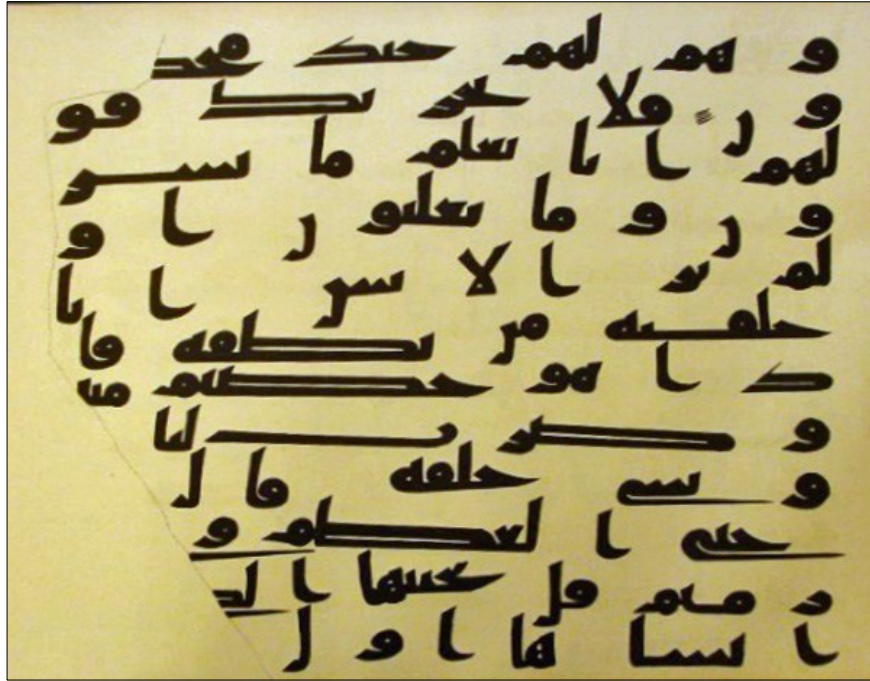 و هم لهم جند محضر
و ن فلا يحزنك قو
لهم ا نا نعلم ما يسر
و ن و ما يعلنو ن ا و
لم ير ا لا نسن ا نا
خلقنه من نطفه فا
ذ ا هو خصيم مبين
و ضر ب لنا
و نسي خلقه قا ل
يحي ا لعظم و
ر ميم قل يحييها ا لذي
ا نشا ها ا و ل